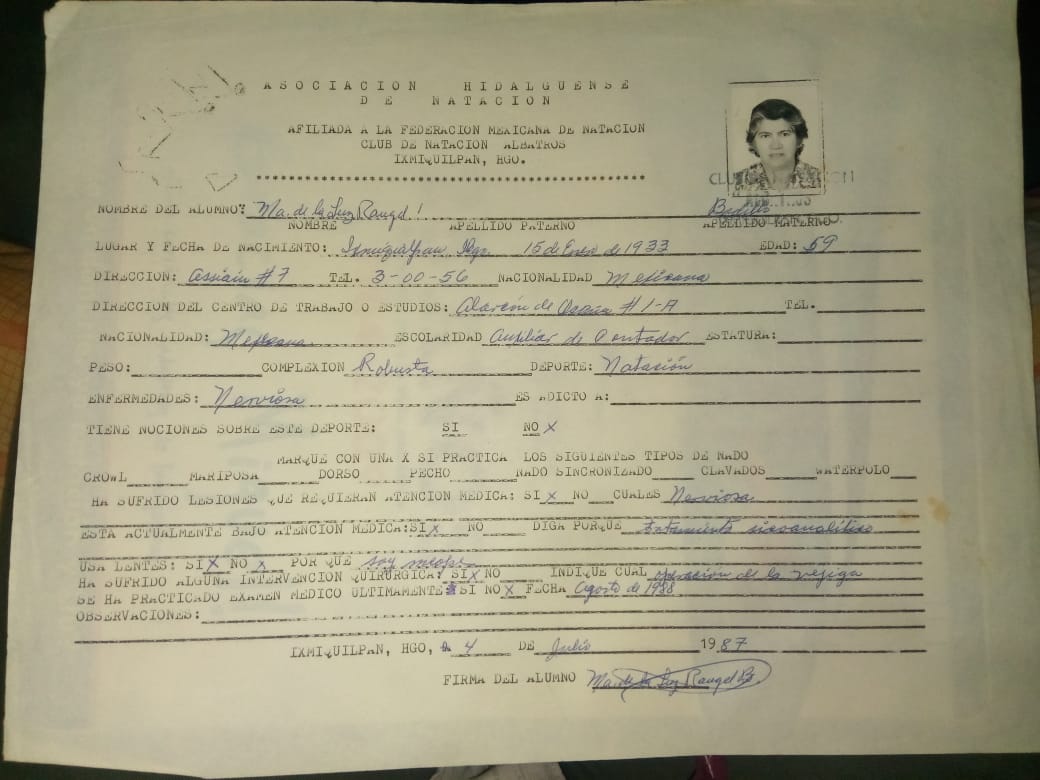 ASOCIACION HIDALGUENSE
DE NATACION
AFILIADA A LA FEDERACION MEXICANA DE NATACION
CLUB DE NATACION ALBATROS
IXMIQUILPAN, HGO.
CLUB NATACION
NOMBRE DEL ALUMNO: Ma. de la Luz Rangel Badillo
NOMBRE APELLIDO PATERNO APELLIDO MATERNO
LUGAR Y FECHA DE NACIMIENTO: Ixmiquilpan Hgo. 15 de Enero de 1933 EDAD: 59
DIRECCION: Assiain #7 TEL. 3-00-56 NACIONALIDAD Mexicana
DIRECCION DEL CENTRO DE TRABAJO O ESTUDIOS: Alarcón de #1-A TEL.
NACIONALIDAD: Mexicana ESCOLARIDAD Auxiliar de Contador ESTATURA:
PESO: COMPLEXION Robusta DEPORTE: Natación
ENFERMEDADES: Nerviosa ES ADICTO A:
TIENE NOCIONES SOBRE ESTE DEPORTE: SI NO X
MARQUE CON UNA X SI PRACTICA LOS SIGUIENTES TIPOS DE NADO
CROWL MARIPOSA DORSO PECHO NADO SINCRONIZADO CLAVADOS WATERPOLO
HA SUFRIDO LESIONES QUE REQUIERAN ATENCION MEDICA: SI X NO CUALES Nerviosa
ESTA ACTUALMENTE BAJO ATENCION MEDICA: SI X NO DIGA PORQUE tratamiento sicoanalitico
USA LENTES: SI X NO X POR QUE soy miope
HA SUFRIDO ALGUNA INTERVENCION QUIRURGICA: SI X NO INDIQUE CUAL operación de la vejiga
SE HA PRACTICADO EXAMEN MEDICO ULTIMAMENTE: SI NO X FECHA Agosto de 1988
OBSERVACIONES:
IXMIQUILPAN, HGO, A 4 DE Julio 1987
FIRMA DEL ALUMNO Ma. de la Luz Rangel B.